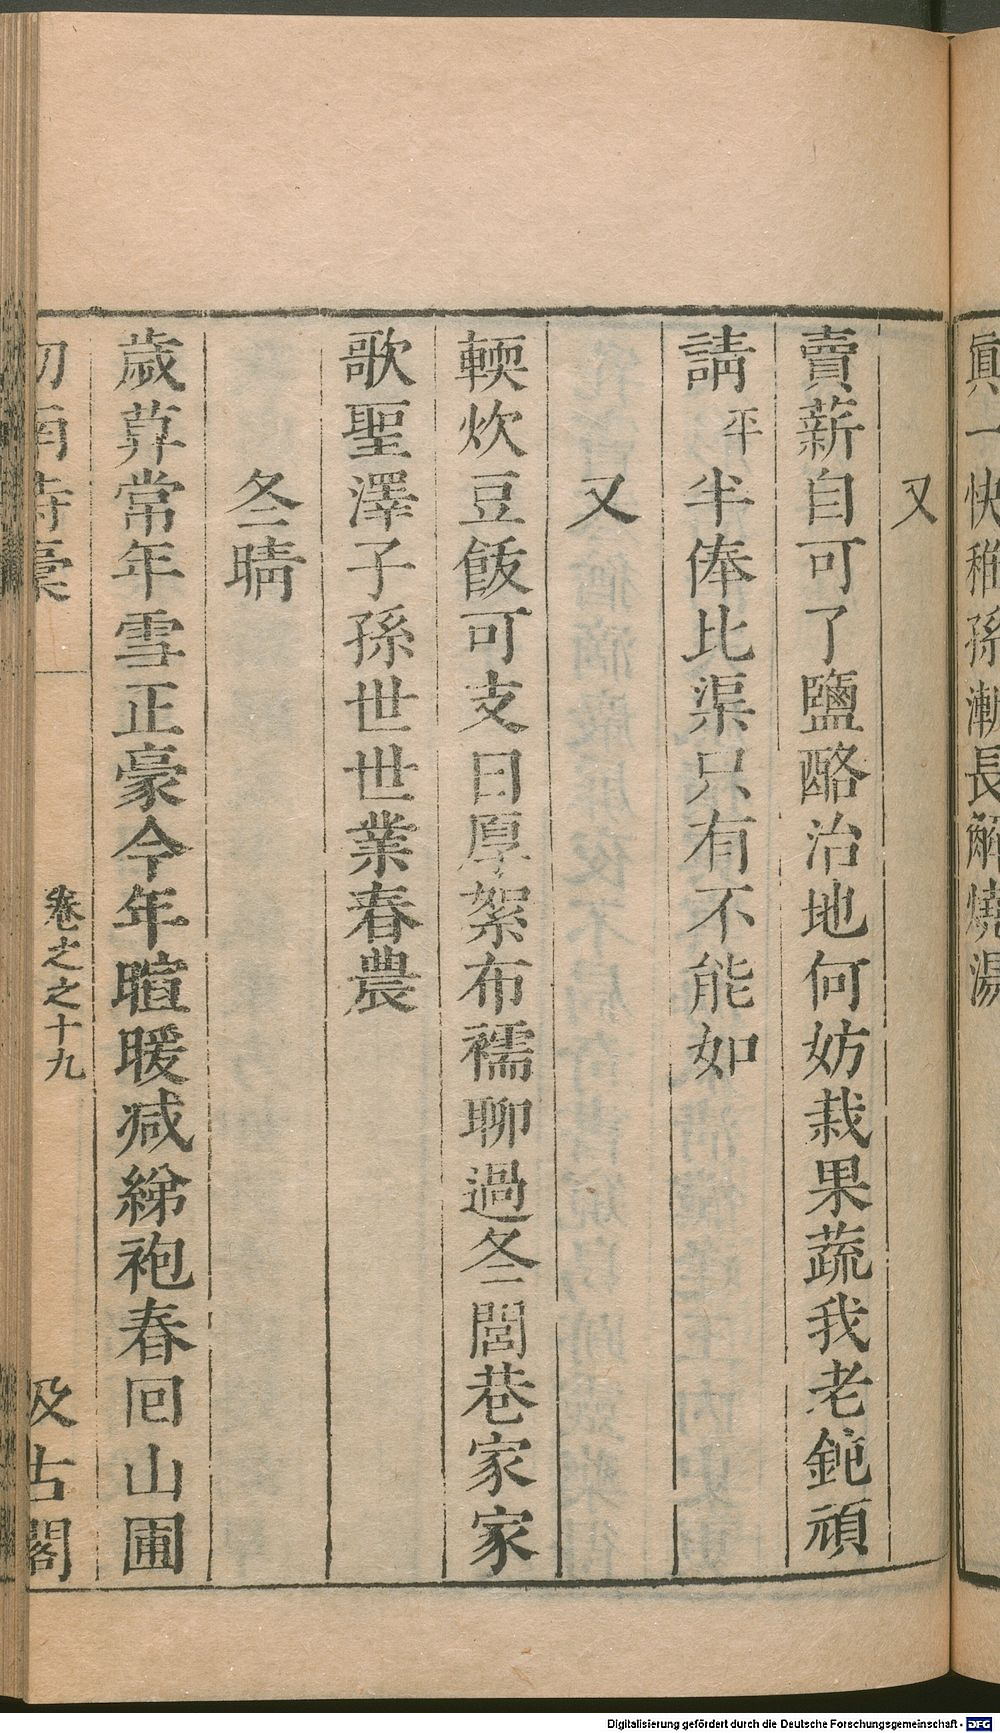 眞一快稚孫漸長解燒湯
又
賣薪自可了鹽酪治地何妨栽果蔬我老鈍頑
請平半俸比渠只有不能如
又
輭炊豆飯可支日厚絮布襦聊過冬閭巷家家
歌聖澤子孫世世業春農
冬晴
歲葬常年雪正豪今年暄暖減綈袍春回山圃
劒南詩稾 卷之之十九 汲古閣
Digitalisierung gefördert durch die Deutsche Forschungsgemeinschaft - DFG